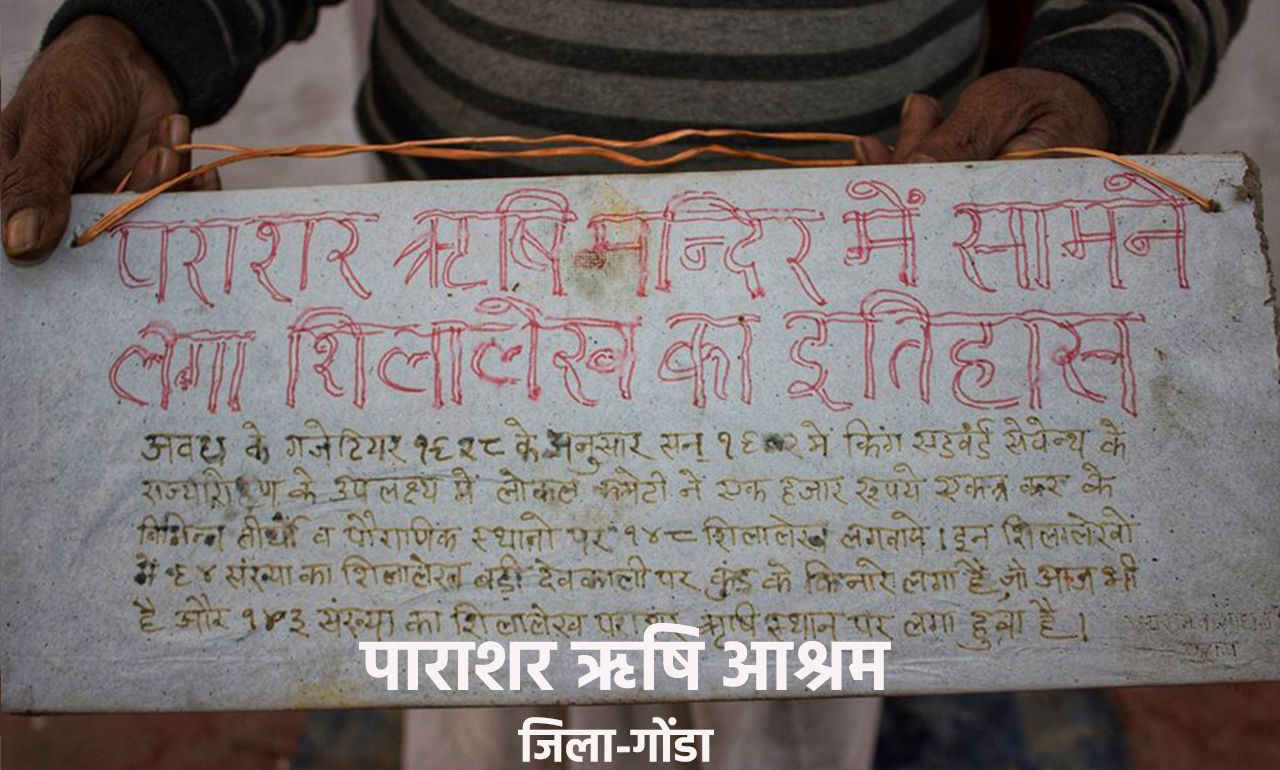 पराशर ऋषि मन्दिर में सामने
लगा शिलालेख का इतिहास
अवध के गजेटियर १९२८ के अनुसार सन् में किंग एडवर्ड सेवेन्थ के
के उपलक्ष्य में लोकल कमेटी ने एक हजार रूपये एकत्र कर के
विभिन्न तीर्थो व पौराणिक स्थानो पर १४८ शिलालेख लगवाये । इन शिलालेखों
में ९४ संख्या का शिलालेख बड़ी देवकाली पर कुंड के किनारे लगा है, जो आज भी
है और संख्या का शिलालेख पराशर ऋषि स्थान पर लगा हुवा है ।
पाराशर ऋषि आश्रम
जिला-गोंडा